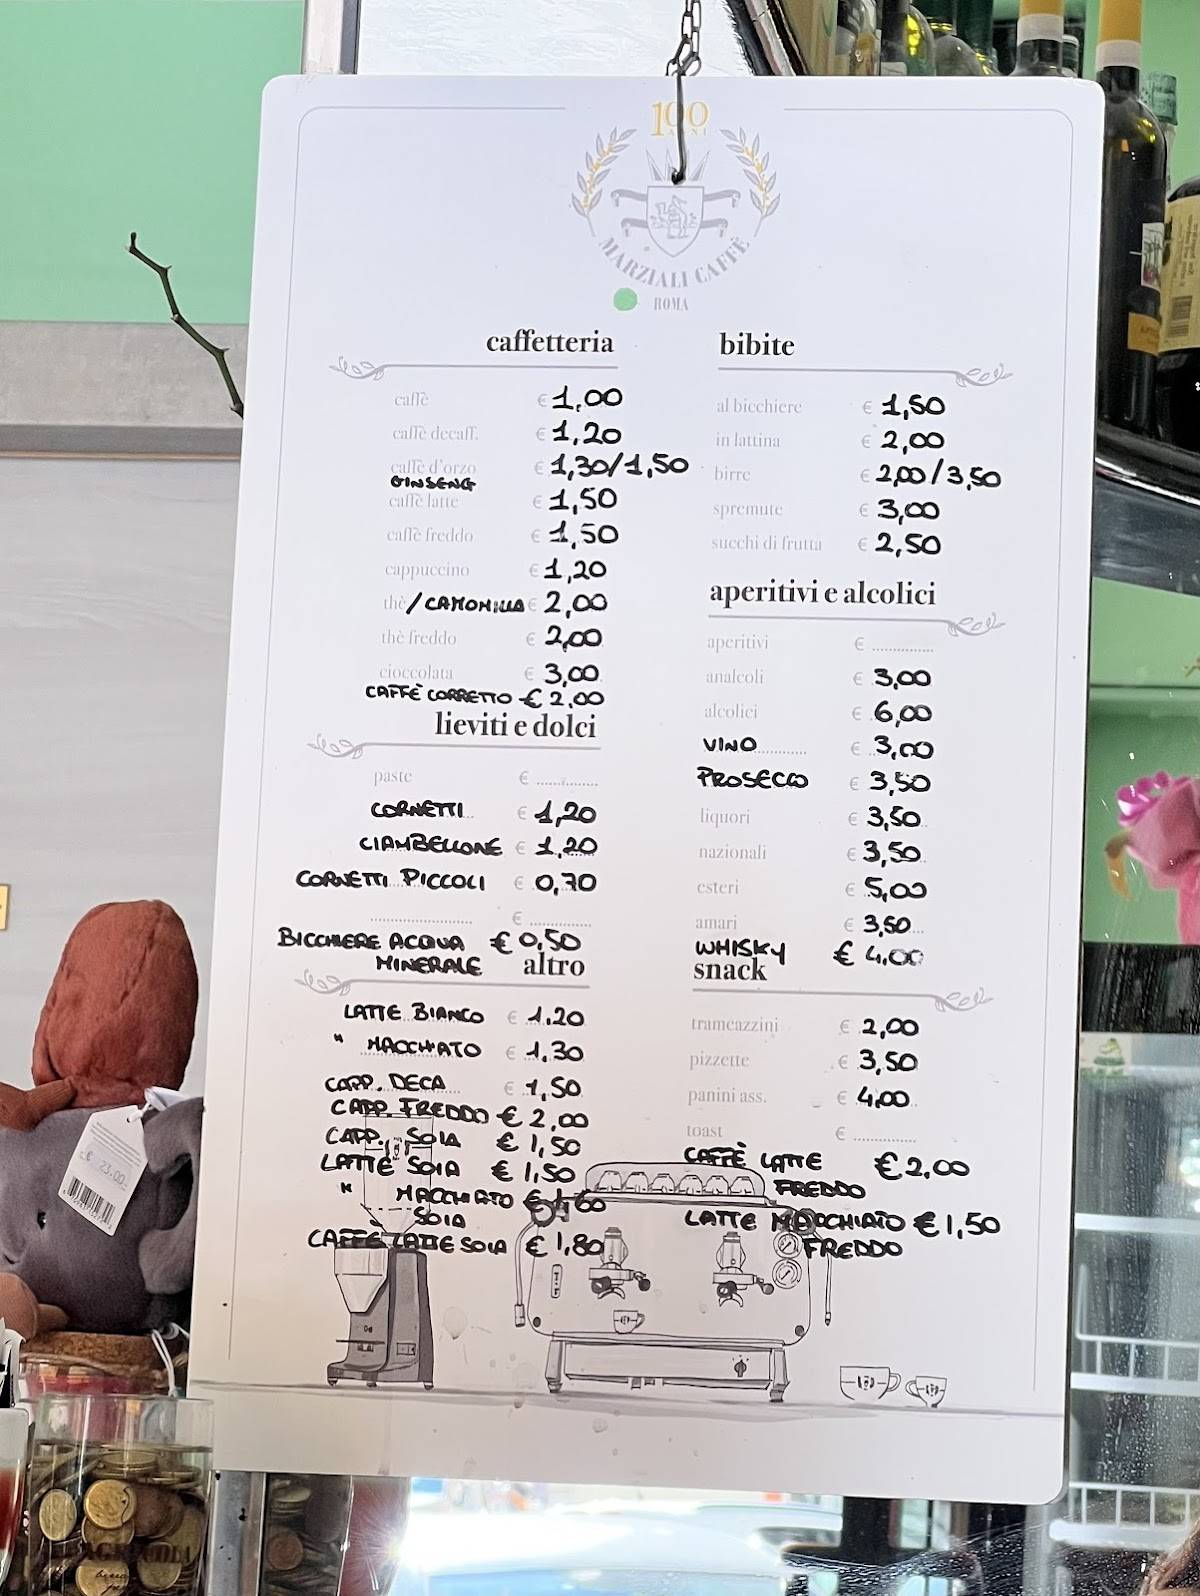 100
ANNI
MARZIALI CAFFÈ
ROMA
caffetteria
caffè € 1,00
caffè decaff. € 1,20
caffè d'orzo € 1,30/1,50
GINSENG
caffè latte € 1,50
caffè freddo € 1,50
cappuccino € 1,20
thè/CAMOMILLA € 2,00
thè freddo € 2,00
cioccolata € 3,00
CAFFÈ CORRETTO € 2,00
lieviti e dolci
paste € ...............
CORNETTI € 1,20
CIAMBELLONE € 1,20
CORNETTI PICCOLI € 0,70
......................... € ...............
BICCHIERE ACQUA € 0,50
MINERALE
altro
LATTE BIANCO € 1.20
" MACCHIATO € 1,30
CAPP. DECA € 1,50
CAPP. FREDDO € 2,00
CAPP. SOIA € 1,50
LATTE SOIA € 1,50
" MACCHIATO € 1,60
SOIA
CAFFÈ LATTE SOIA € 1,80
bibite
al bicchiere € 1,50
in lattina € 2,00
birre € 2,00/3,50
spremute € 3,00
succhi di frutta € 2,50
aperitivi e alcolici
aperitivi € ...............
analcoli € 3,00
alcolici € 6,00
VINO € 3,00
PROSECCO € 3,50
liquori € 3,50
nazionali € 3,50
esteri € 5,00
amari € 3,50
WHISKY € 4,00
snack
tramezzini € 2,00
pizzette € 3,50
panini ass. € 4,00
toast € ...............
CAFFÈ LATTE € 2,00
FREDDO
LATTE MACCHIATO € 1,50
FREDDO
€ 23.00